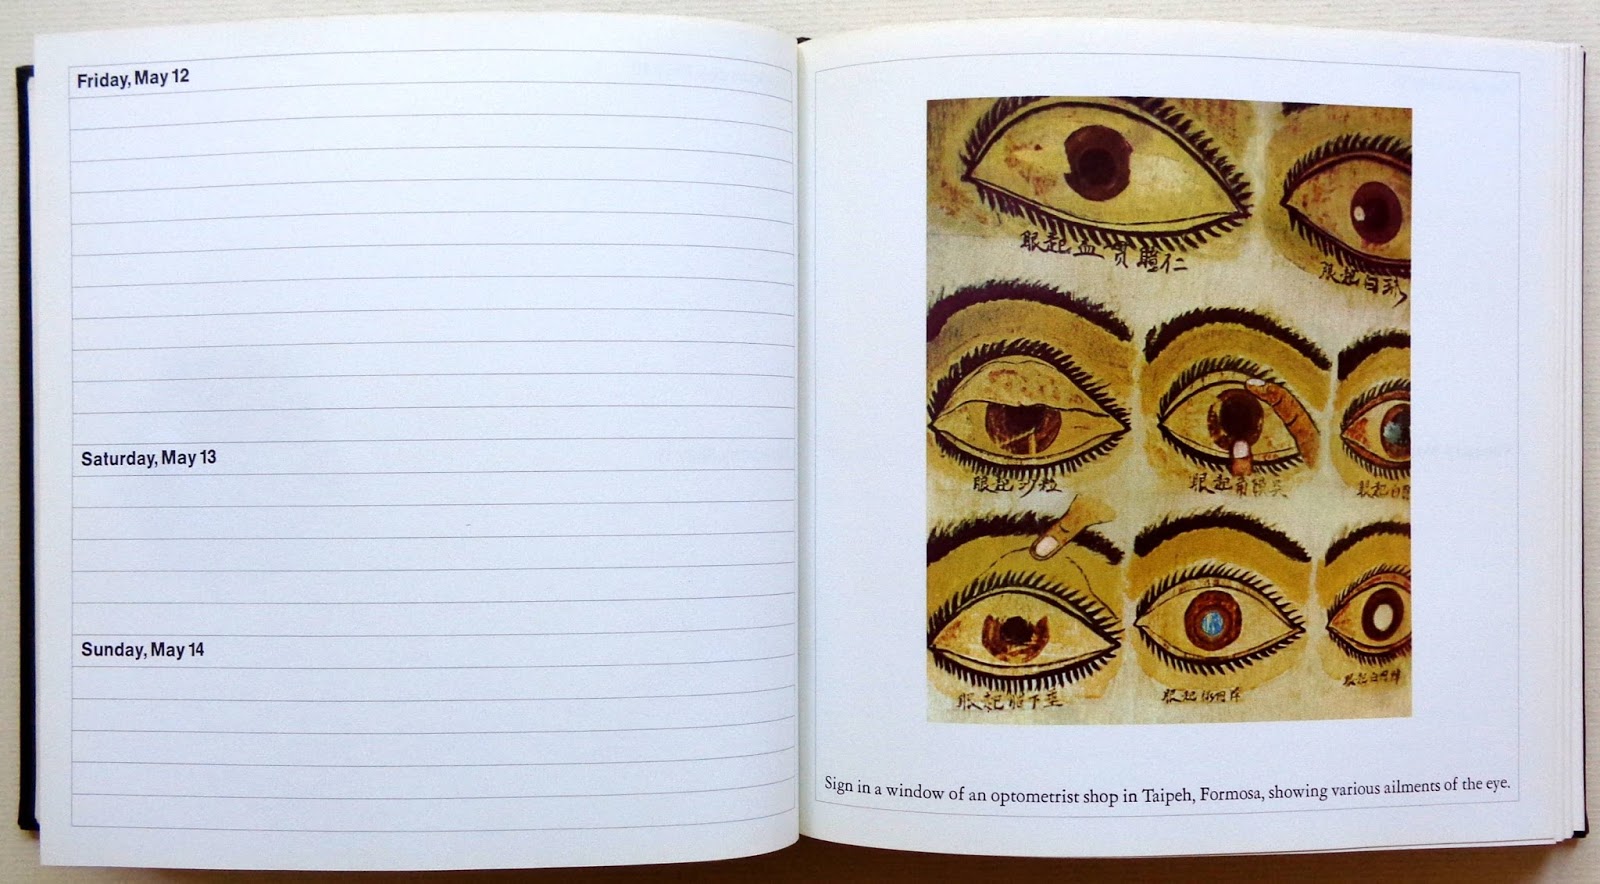 Friday, May 12
Saturday, May 13
Sunday, May 14
眼起血貫瞳仁
眼起白
眼起沙粒
眼起
眼起白
眼起
眼起
眼起白
Sign in a window of an optometrist shop in Taipeh, Formosa, showing various ailments of the eye.